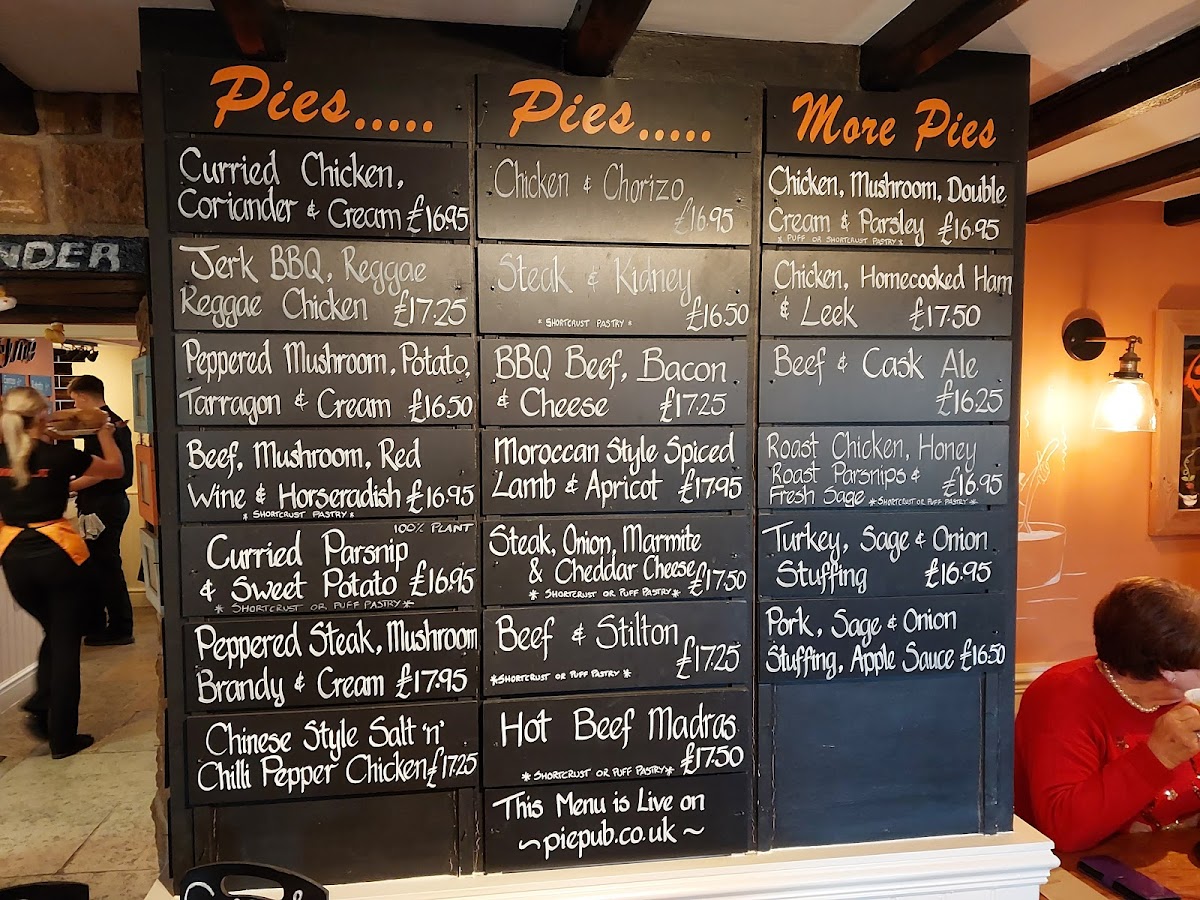 Pies.....
Curried Chicken,
Coriander & Cream £16.95
Jerk BBQ, Reggae
Reggae Chicken £17.25
Peppered Mushroom, Potato,
Tarragon & Cream £16.50
Beef, Mushroom, Red
Wine & Horseradish £16.95
* SHORTCRUST PASTRY *
100% PLANT
Curried Parsnip
& Sweet Potato £16.95
* SHORTCRUST OR PUFF PASTRY *
Peppered Steak, Mushroom
Brandy & Cream £17.95
Chinese Style Salt 'n'
Chilli Pepper Chicken £17.25
Pies.....
Chicken & Chorizo
£16.95
Steak & Kidney
* SHORTCRUST PASTRY * £16.50
BBQ Beef, Bacon
& Cheese £17.25
Moroccan Style Spiced
Lamb & Apricot £17.95
Steak, Onion, Marmite
& Cheddar Cheese £17.50
* SHORTCRUST OR PUFF PASTRY *
Beef & Stilton
£17.25
*SHORTCRUST OR PUFF PASTRY *
Hot Beef Madras
* SHORTCRUST OR PUFF PASTRY * £17.50
This Menu is Live on
~piepub.co.uk~
More Pies
Chicken, Mushroom, Double
Cream & Parsley £16.95
* PUFF OR SHORTCRUST PASTRY *
Chicken, Homecooked Ham
& Leek £17.50
Beef & Cask Ale
£16.25
Roast Chicken, Honey
Roast Parsnips & £16.95
Fresh Sage *SHORTCRUST OR PUFF PASTRY *
Turkey, Sage & Onion
Stuffing £16.95
Pork, Sage & Onion
Stuffing, Apple Sauce £16.50